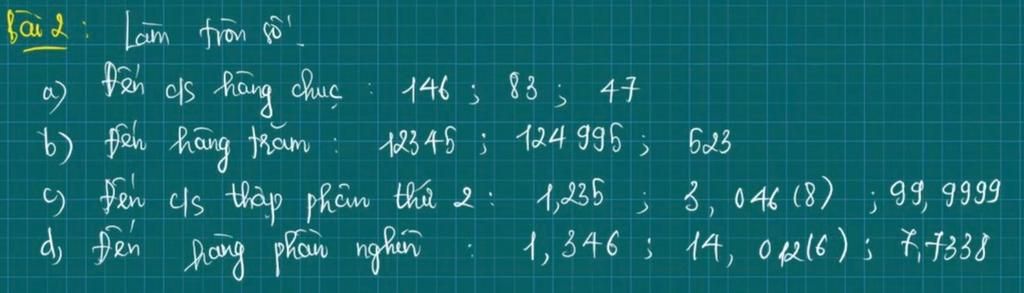 Bài 2 : Làm tròn số.
a) Đến c/s hàng chục : 146 ; 83 ; 47
b) Đến hàng trăm : 12345 ; 124 995 ; 523
c) Đến c/s thập phân thứ 2 : 1,235 ; 3, 046 (8) ; 99, 9999
d) Đến hàng phần nghìn : 1, 346 ; 14, 012(6) ; 7,7338